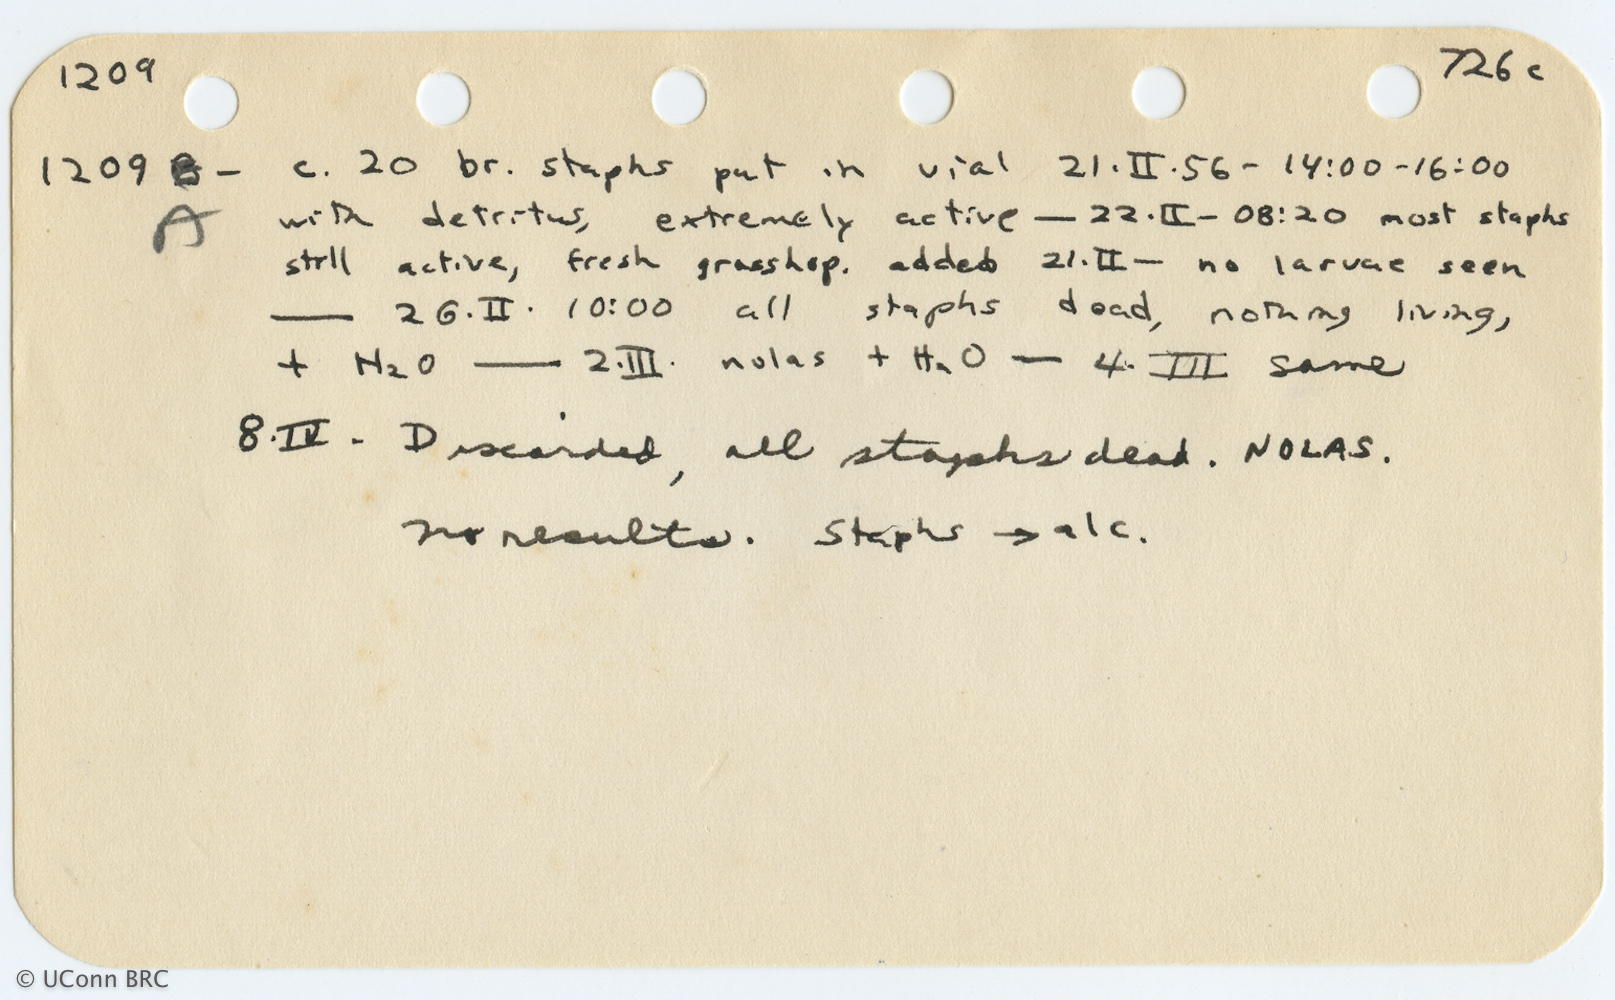 1209 726c
1209 B - c. 20 br. staphs put in vial 21.II.56 - 14:00-16:00
A with detritus, extremely active — 22.II - 08:20 most staphs
still active, fresh grasshop. added 21.II — no larvae seen
— 26.II. 10:00 all staphs dead, nothing living,
+ H2O — 2.III. nolas + H2O — 4.III same
8.IV - Discarded, all staphs dead. NOLAS.
no results. Staphs → alc.
© UConn BRC